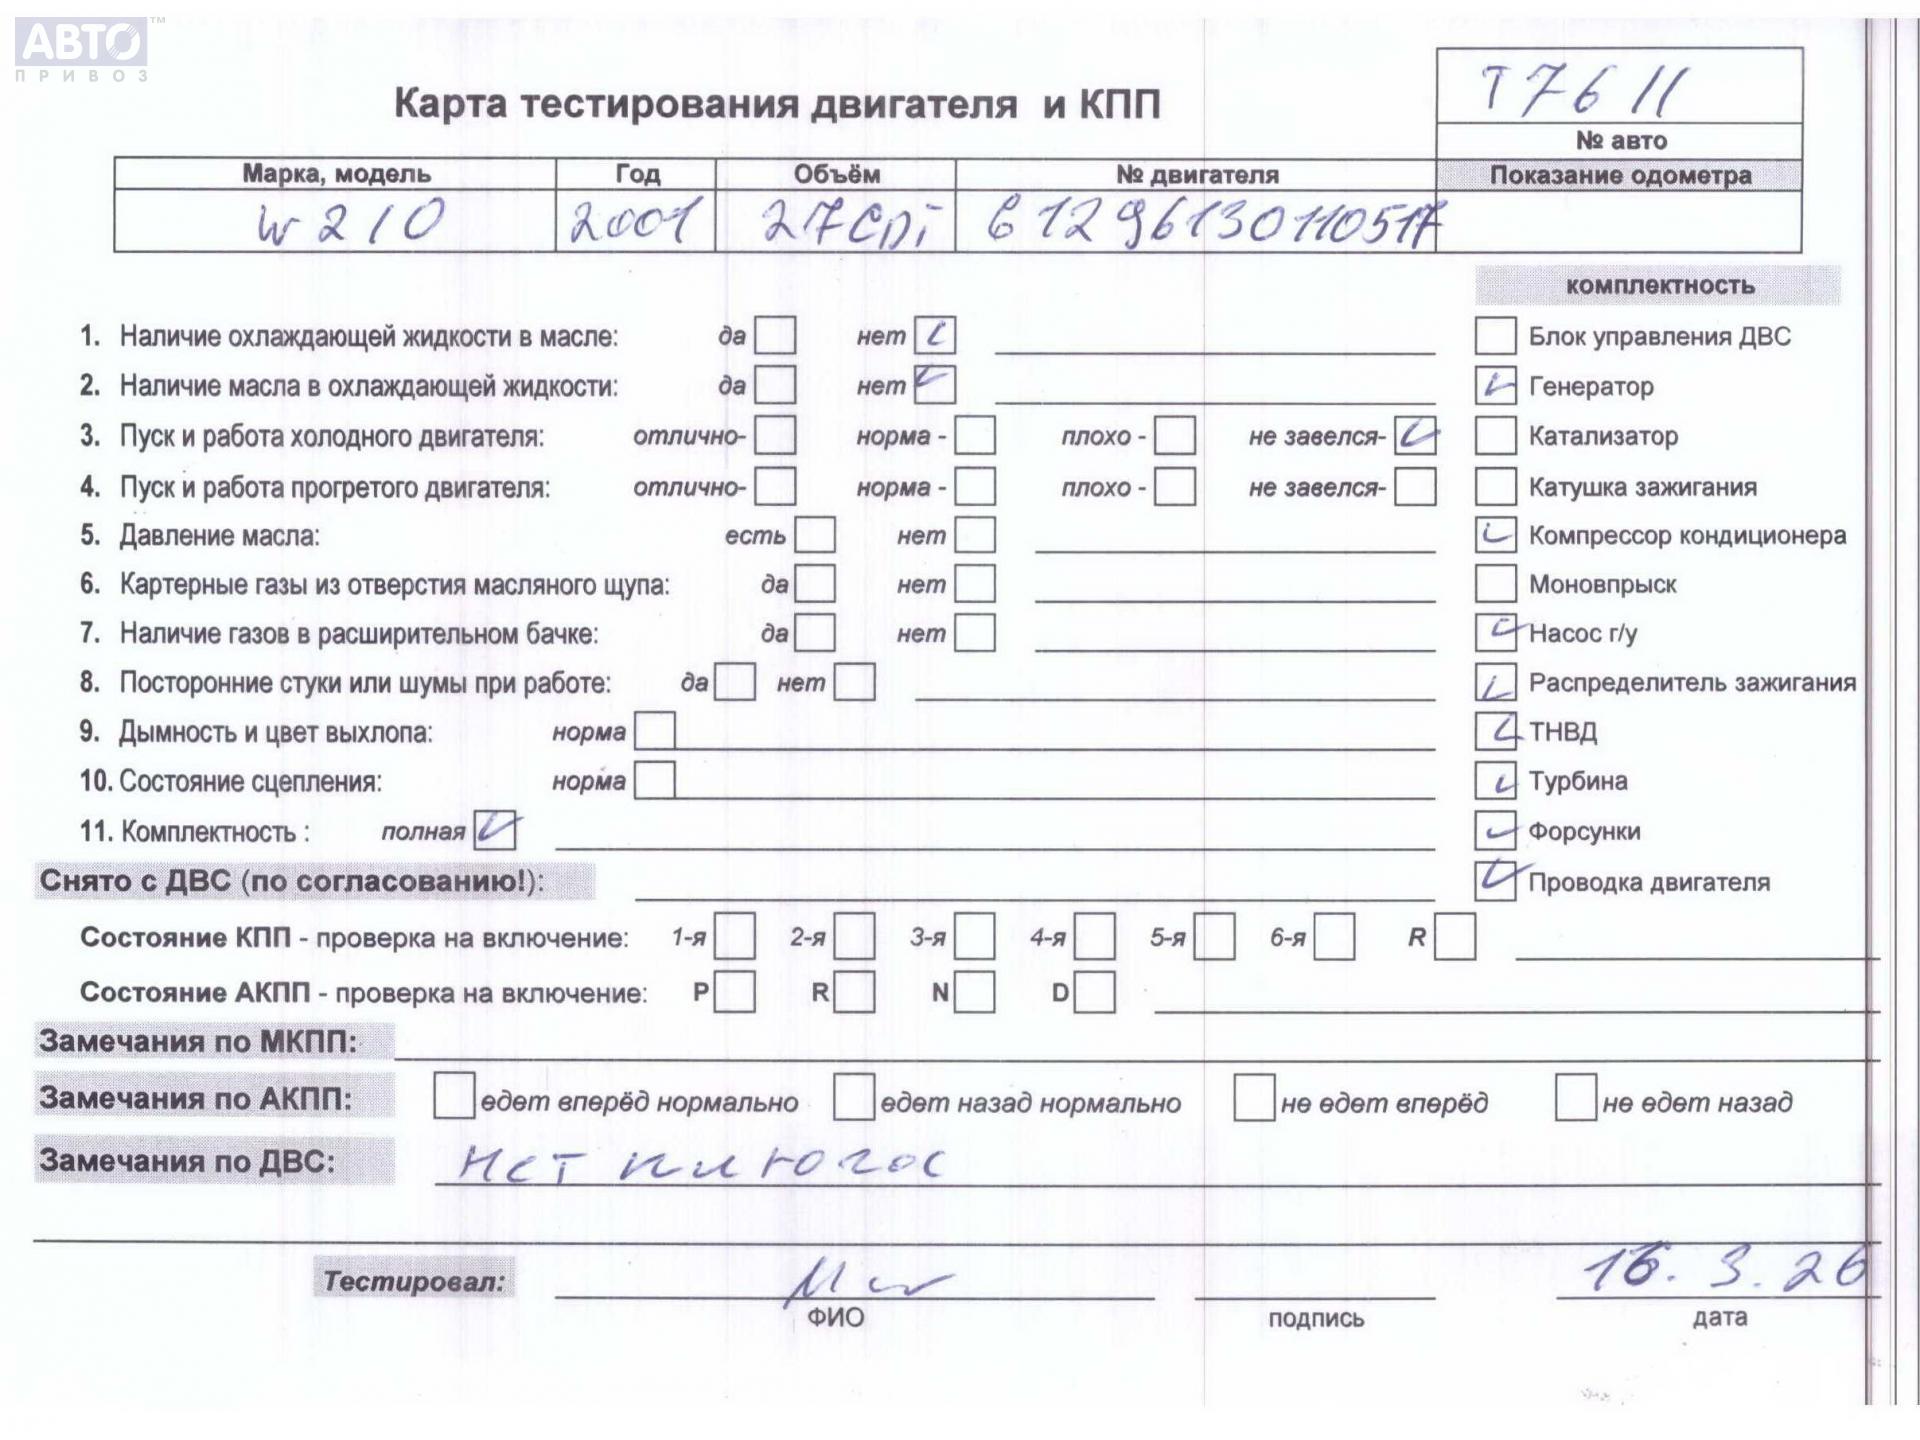 АВТО™
ПРИВОЗ
Т7611
Карта тестирования двигателя и КПП
№ авто
Марка, модель Год Объём № двигателя Показание одометра
W210 2001 27CDi 61296130110517
комплектность
1. Наличие охлаждающей жидкости в масле: да нет Блок управления ДВС
2. Наличие масла в охлаждающей жидкости: да нет Генератор
3. Пуск и работа холодного двигателя: отлично- норма - плохо - не завелся- Катализатор
4. Пуск и работа прогретого двигателя: отлично- норма - плохо - не завелся- Катушка зажигания
5. Давление масла: есть нет Компрессор кондиционера
6. Картерные газы из отверстия масляного щупа: да нет Моновпрыск
7. Наличие газов в расширительном бачке: да нет Насос г/у
8. Посторонние стуки или шумы при работе: да нет Распределитель зажигания
9. Дымность и цвет выхлопа: норма ТНВД
10. Состояние сцепления: норма Турбина
11. Комплектность : полная Форсунки
Снято с ДВС (по согласованию!): Проводка двигателя
Состояние КПП - проверка на включение: 1-я 2-я 3-я 4-я 5-я 6-я R
Состояние АКПП - проверка на включение: P R N D
Замечания по МКПП:
Замечания по АКПП: едет вперёд нормально едет назад нормально не едет вперёд не едет назад
Замечания по ДВС: нет
Тестировал: 16.3.26
ФИО подпись дата